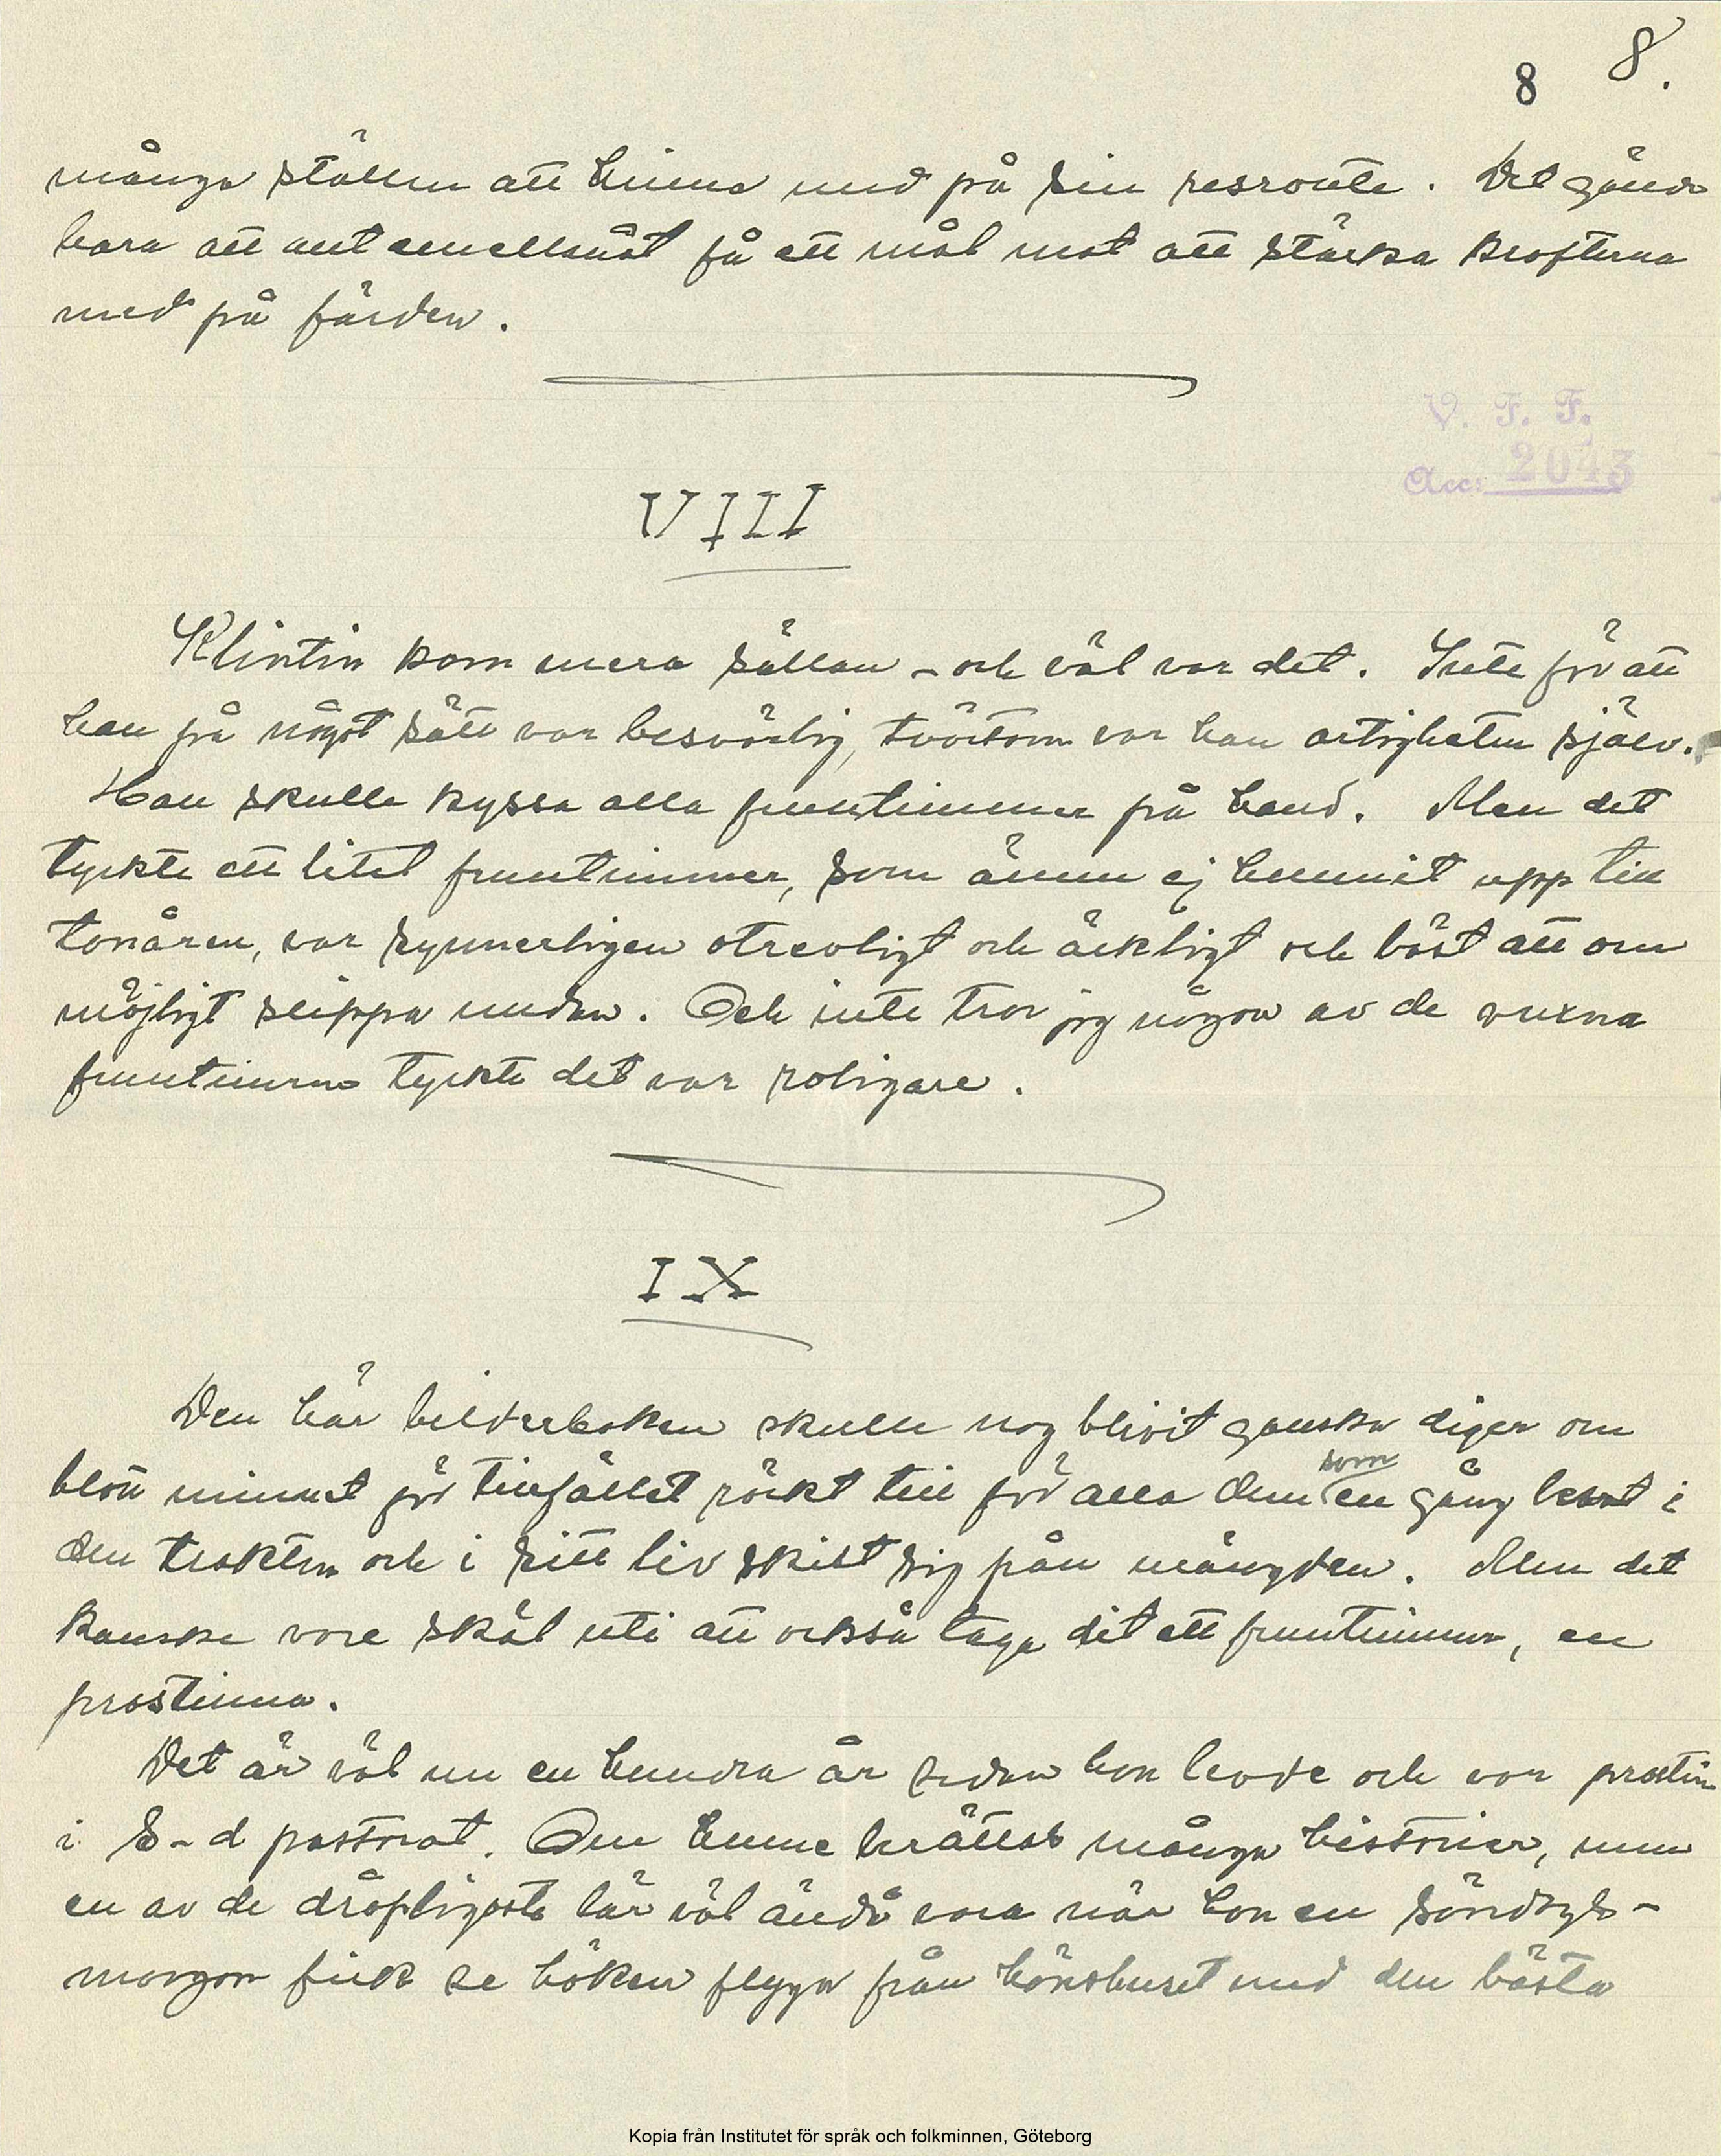 8 8.
många ställen att hinna med på sin resroute. Det gällde
bara att ant emellanåt få ett mål mat att stärka krafterna
med på färden.
V. F. F.
Acc: 2043
VIII
Klintin kom mera sällan – och väl var det. Inte för att
han på något sätt var besvärlig, tvärtom var han artigheten själv.
Han skulle kyssa alla fruntimmer på hand. Men det
tyckte ett litet fruntimmer, som ännu ej hunnit upp till
tonåren, var synnerligen otrevligt och äckligt och bäst att om
möjligt slippa undan. Och inte tror jag någon av de vuxna
fruntimren tyckte det var roligare.
IX
Den här bilderboken skulle nog blivit ganska diger om
blott minnet för tillfället räckt till för alla dem som en gång levat i
den trakten och i sitt liv skilt sig från mängden. Men det
kanske vore skäl uti att också taga dit ett fruntimmer, en
prostinna.
Det är väl nu en hundra år sedan hon levde och var prostin
i S–d pastorat. Om henne berättas många historier, men
en av de dråpligaste lär väl ändå vara när hon en söndags-
morgon fick se höken flyga från hönshuset med den bästa
Kopia från Institutet för språk och folkminnen, Göteborg